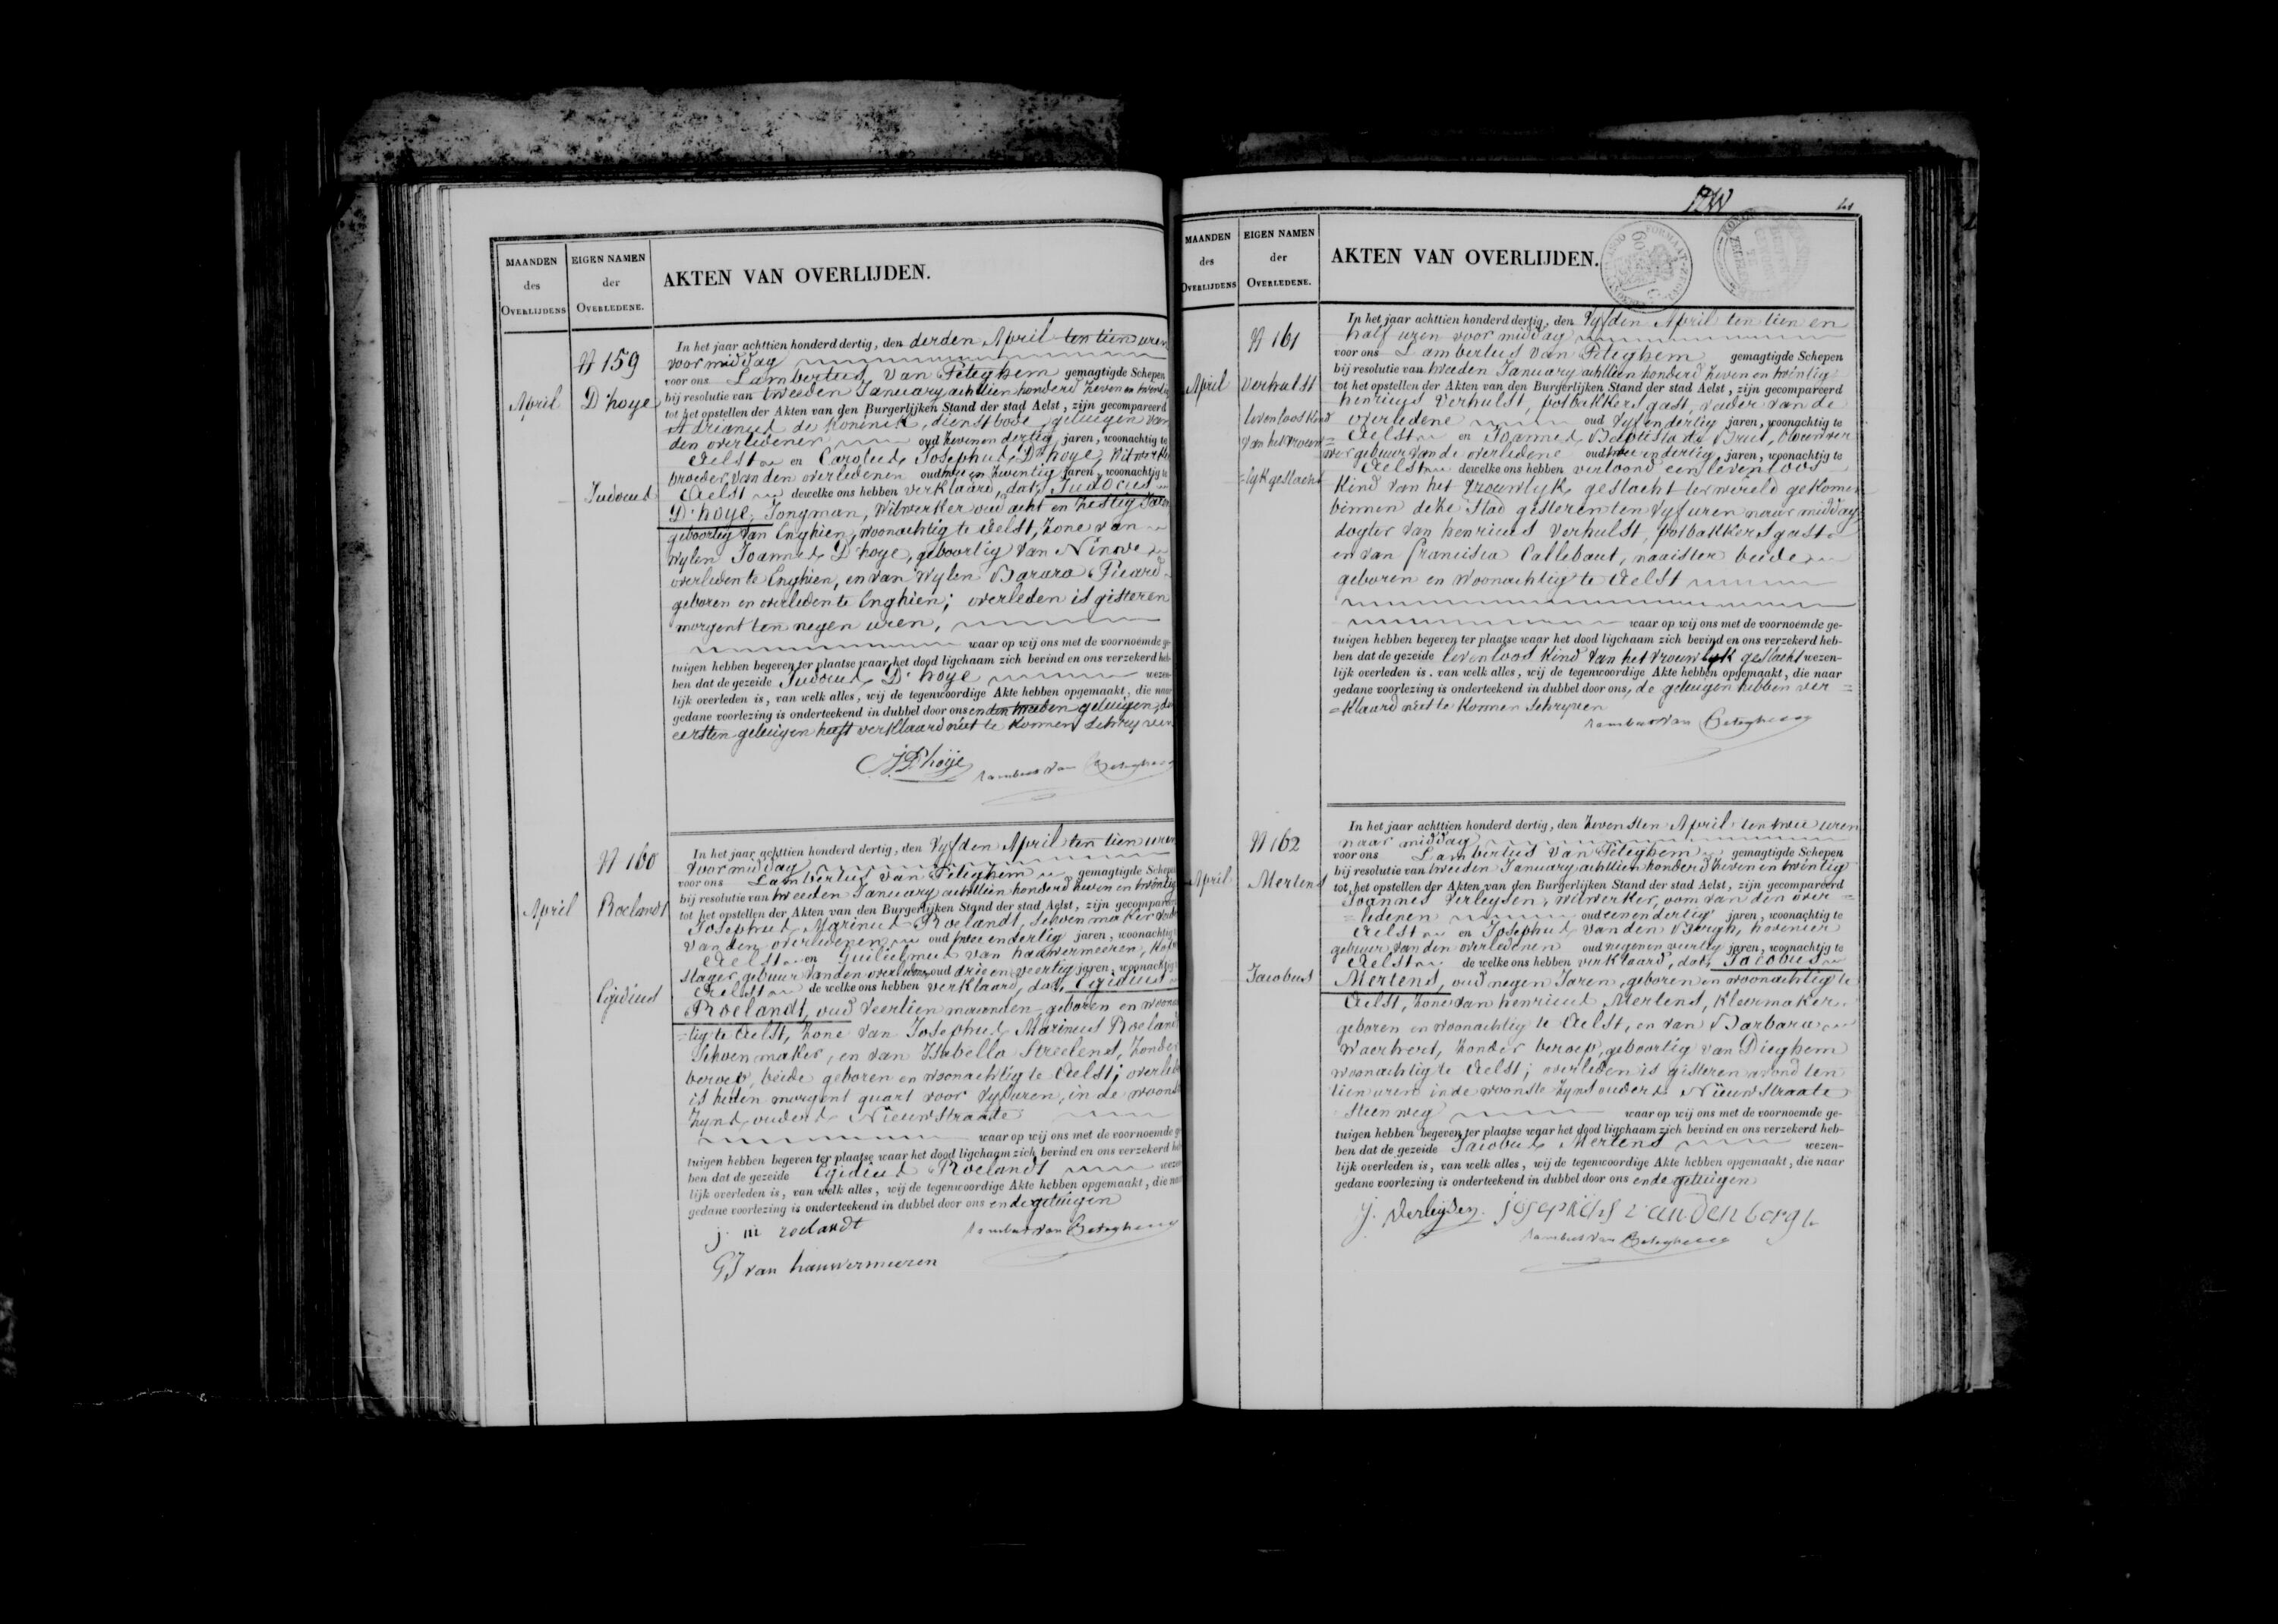 MAANDEN
des
OVERLIJDENS
EIGEN NAMEN
der
OVERLEDENE.
AKTEN VAN OVERLIJDEN.
N 159
April
D'hoye
Judocus
In het jaar achttien honderd dertig, den derden April ten tien uren
voormiddag
voor ons Lambertus Van Peteghem gemagtigde Schepen
bij resolutie van tweeden January achttien honderd zeven en twintig
tot het opstellen der Akten van den Burgerlijken Stand der stad Aelst, zijn gecompareerd
Adrianus de Koninck, dienstbode, getuigen van
den overledenen oud zeven en dertig jaren, woonachtig te
Aelst en Carolus Josephus D'hoye, Witwerker
broeder van den overledenen oud twee en zeventig jaren, woonachtig te
Aelst dewelke ons hebben verklaard, dat Judocus
D'hoye, Jongman, Witwerker oud acht en zestig Jaren
geboortig van Enghien, woonachtig te Aelst, zone van
wylen Joannes D'hoye, geboortig van Ninove
overleden te Enghien, en van wylen Barara Picard
geboren en overleden te Enghien; overleden is gisteren
morgent ten negen uren,
waar op wij ons met de voornoemde ge-
tuigen hebben begeven ter plaatse waar het dood ligchaam zich bevind en ons verzekerd heb-
ben dat de gezeide Judocus D'hoye wezen-
lijk overleden is, van welk alles, wij de tegenwoordige Akte hebben opgemaakt, die naar
gedane voorlezing is onderteekend in dubbel door ons en den tweeden getuigen, den
eersten getuigen heeft verklaard niet te konnen schryven
D'hoije Lambert Van Peteghem
N 160
April
Roelandt
Egidius
In het jaar achttien honderd dertig, den Vyfden April ten tien uren
voormiddag
voor ons Lambertus Van Peteghem gemagtigde Schepen
bij resolutie van tweeden January achttien honderd zeven en twintig
tot het opstellen der Akten van den Burgerlijken Stand der stad Aelst, zijn gecompareerd
Josephus Marinus Roelandt, schoenmaker vader
van den overledenen oud twee en dertig jaren, woonachtig te
Aelst en Guilielmus van hauwermeeren,
slager, gebuur van den overledenen oud drie en veertig jaren, woonachtig te
Aelst de welke ons hebben verklaard, dat Egidius
Roelandt, oud veertien maanden, geboren en woonach
=tig te Aelst, zone van Josephus Marinus Roelandt
schoenmaker, en van Isabella Streelens, zonder
beroep, beide geboren en woonachtig te Aelst; overleden
is heden morgent quart voor vyf uren, in de woonste
zyns ouders Nieuwstraate
waar op wij ons met de voornoemde ge-
tuigen hebben begeven ter plaatse waar het dood ligchaam zich bevind en ons verzekerd heb-
ben dat de gezeide Egidius Roelandt wezen-
lijk overleden is, van welk alles, wij de tegenwoordige Akte hebben opgemaakt, die naar
gedane voorlezing is onderteekend in dubbel door ons en de getuigen
j m roelandt Lambert Van Peteghem
GJ van hauwermeeren
MAANDEN
des
OVERLIJDENS
EIGEN NAMEN
der
OVERLEDENE.
AKTEN VAN OVERLIJDEN.
N 161
April
Verhulst
levenloos Kind
van het vrouw=
=lyk geslacht
In het jaar achttien honderd dertig, den Vyfden April ten tien en
half uren voor middag
voor ons Lambertus Van Peteghem gemagtigde Schepen
bij resolutie van tweeden January achttien honderd zeven en twintig
tot het opstellen der Akten van den Burgerlijken Stand der stad Aelst, zijn gecompareerd
henricus Verhulst, potbakkers gast, vader van de
overledene oud vyf en dertig jaren, woonachtig te
Aelst en Joannes Baptista de Bruel,
gebuur van de overledene oud twee en dertig jaren, woonachtig te
Aelst dewelke ons hebben vertoond een levenloos
Kind van het vrouwlyk geslacht ter wereld gekomen
binnen deze Stad gisteren ten vyf uren naar middag
dogter van henricus Verhulst, potbakkers gast
en van francisca Callebaut, naaister beide
geboren en woonachtig te Aelst
waar op wij ons met de voornoemde ge-
tuigen hebben begeven ter plaatse waar het dood ligchaam zich bevind en ons verzekerd heb-
ben dat de gezeide levenloos Kind van het vrouwlyk geslacht wezen-
lijk overleden is. van welk alles, wij de tegenwoordige Akte hebben opgemaakt, die naar
gedane voorlezing is onderteekend in dubbel door ons, de getuigen hebben ver=
=klaard niet te konnen schryven
Lambert Van Peteghem
N 162
April
Mertens
Jacobus
In het jaar achttien honderd dertig, den zevensten April ten twee uren
naar middag
voor ons Lambertus Van Peteghem gemagtigde Schepen
bij resolutie van tweeden January achttien honderd zeven en twintig
tot het opstellen der Akten van den Burgerlijken Stand der stad Aelst, zijn gecompareerd
Joannes Verleysen, witwerker, oom van den over=
=ledenen oud een en dertig jaren, woonachtig te
Aelst en Josephus van den Bergh, hovenier
gebuur van den overledenen oud negen en veertig jaren, woonachtig te
Aelst de welke ons hebben verklaard, dat Jacobus
Mertens, oud negen Jaren, geboren en woonachtig te
Aelst, zone van henricus Mertens, kleermaker
geboren en woonachtig te Aelst, en van Barbara
Waervert, zonder beroep, geboortig van Dieghem
woonachtig te Aelst; overleden is gisteren avond ten
tien uren in de woonste zyns ouders Nieuwstraate
steenweg waar op wij ons met de voornoemde ge-
tuigen hebben begeven ter plaatse waar het dood ligchaam zich bevind en ons verzekerd heb-
ben dat de gezeide Jacobus Mertens wezen-
lijk overleden is, van welk alles, wij de tegenwoordige Akte hebben opgemaakt, die naar
gedane voorlezing is onderteekend in dubbel door ons en de getuigen
j. Verleysen. josephus vandenbergh
Lambert Van Peteghem